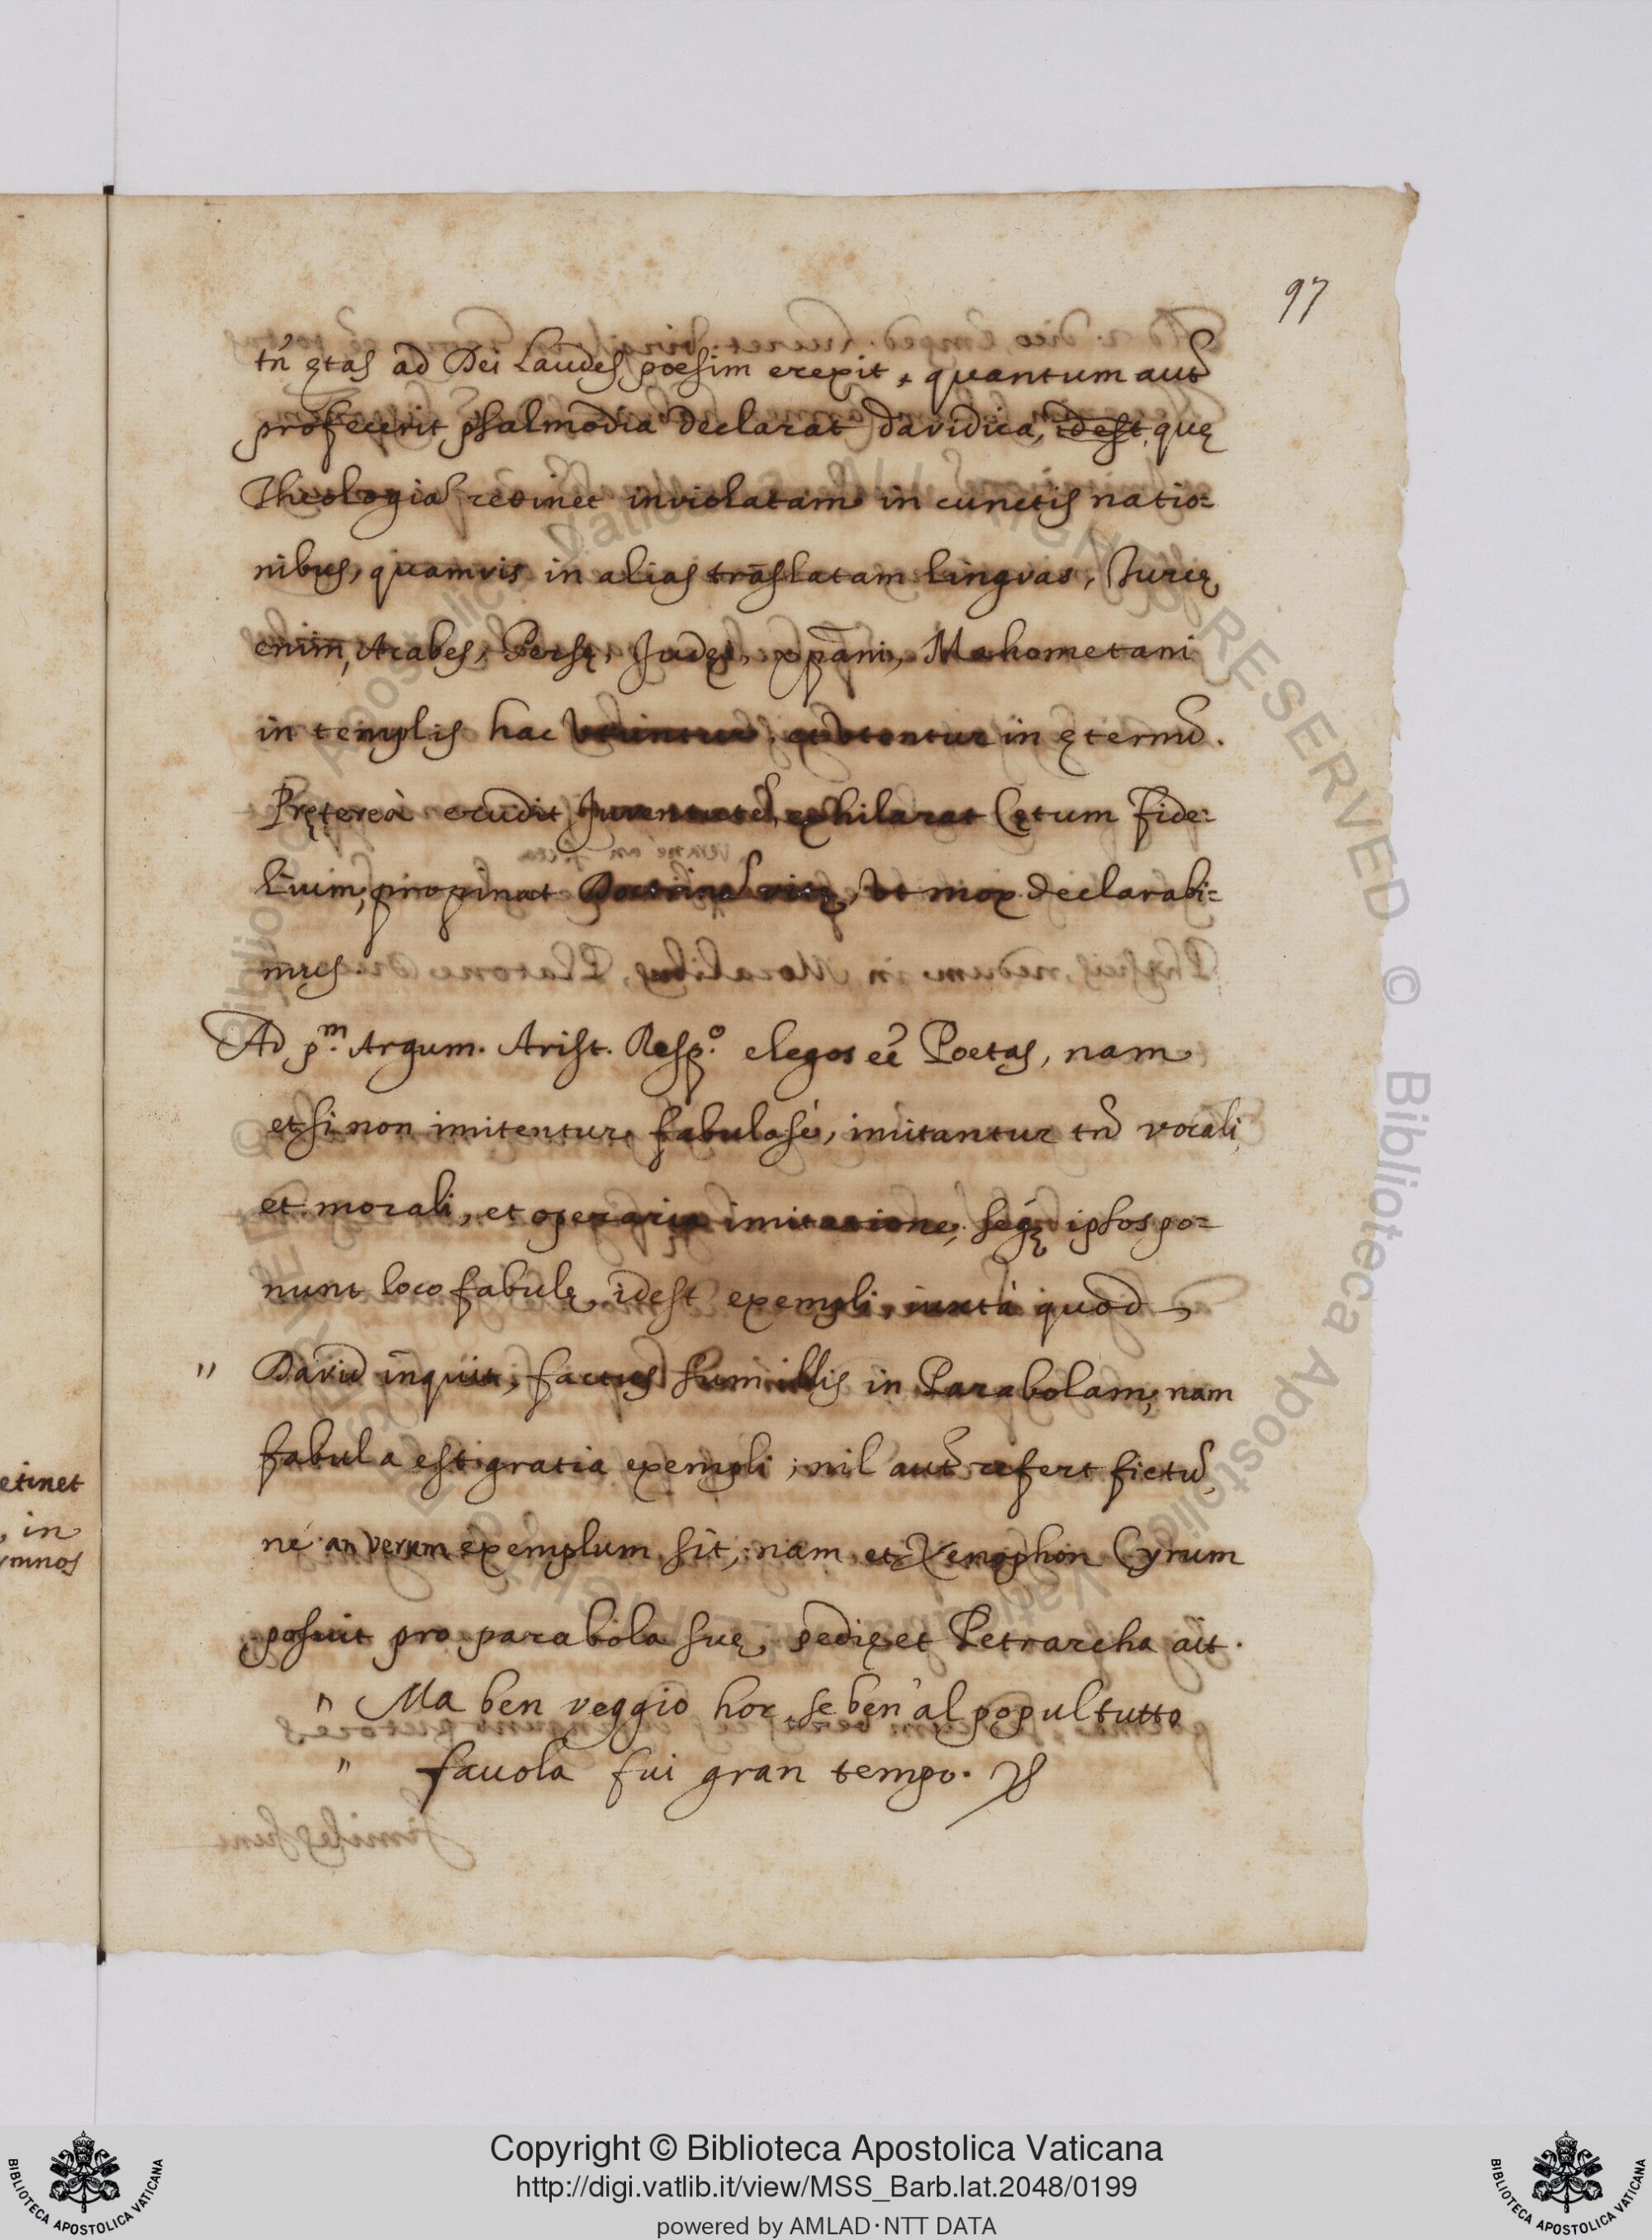 97
tñ ętas ad Dei Laudes poesim erexit, quantum aut̃
profecerit psalmodia declarat davidica, idest, quę
Theologiã retinet inviolatam in cunctis natio=
nibus, quamvis in alias trãslatam linguas, Turcę
enim, Arabes, Persę, Judęi, xp̃ani, Mahometani
in templis hac utuntur, et utentur in ęternũ.
Pręterea erudit Juventutẽ, exhilarat Cętum fide=
lium, propinat Doctrinã vitę, ut mox declarabi=
mus.
Ad p.m Argum. Arist. Resp.o elegos eẽ Poetas, nam
etsi non imitentur fabulosè, imitantur tñ vocali
et morali, et operaria imitatione, seq́ꝫ ipsos po=
nunt loco fabulę, idest exempli, iuxtà quod
" David inquit, factus sum illis in Parabolam, nam
fabula est gratia exempli; nil aut̃ refert fictũ
ne an verum exemplum sit, nam et Xenophon Cyrum
posuit pro parabola suę pedię et Petrarcha ait.
" Ma ben veggio hor, se ben' al popul tutto
" favola fui gran tempo.
etinet
, in
ymnos
© Biblioteca Apostolica Vaticana
ALL RIGHTS RESERVED
Copyright © Biblioteca Apostolica Vaticana
http://digi.vatlib.it/view/MSS_Barb.lat.2048/0199
powered by AMLAD·NTT DATA
BIBLIOTECA APOSTOLICA VATICANA
BIBLIOTECA APOSTOLICA VATICANA